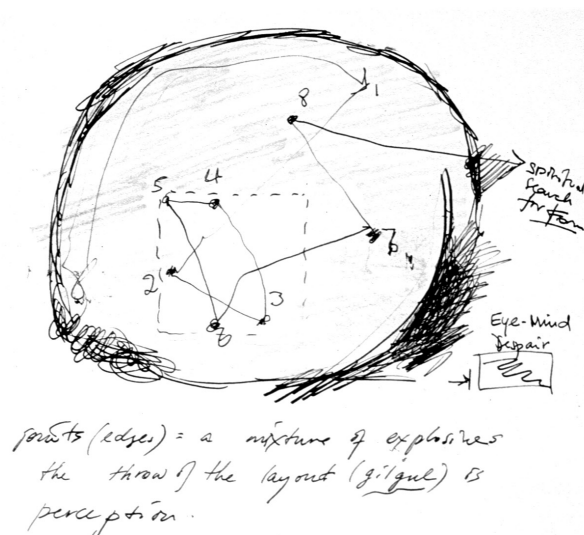 1
8
spiritual
search
for Form
5 4
7
2
3
6
Eye-Mind
Despair
points (edges) = a mixture of explosives
the throw of the layout (gilgul) is
perception.